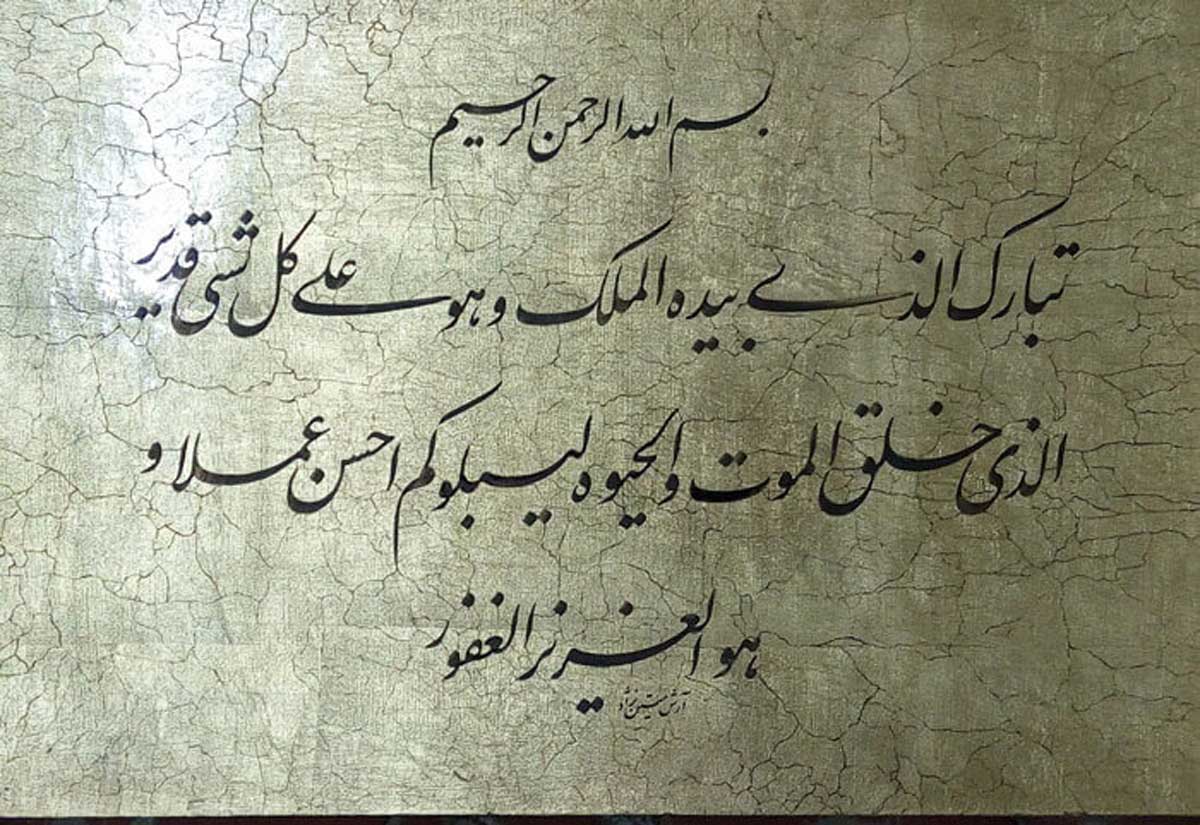 بسم الله الرحمن الرحیم
تبارک الذی بیده الملک و هو علی کل شی قدیر
الذی خلق الموت و الحیوه لیبلوکم احسن عملا و
هو العزیز الغفور
آرش متین نژاد